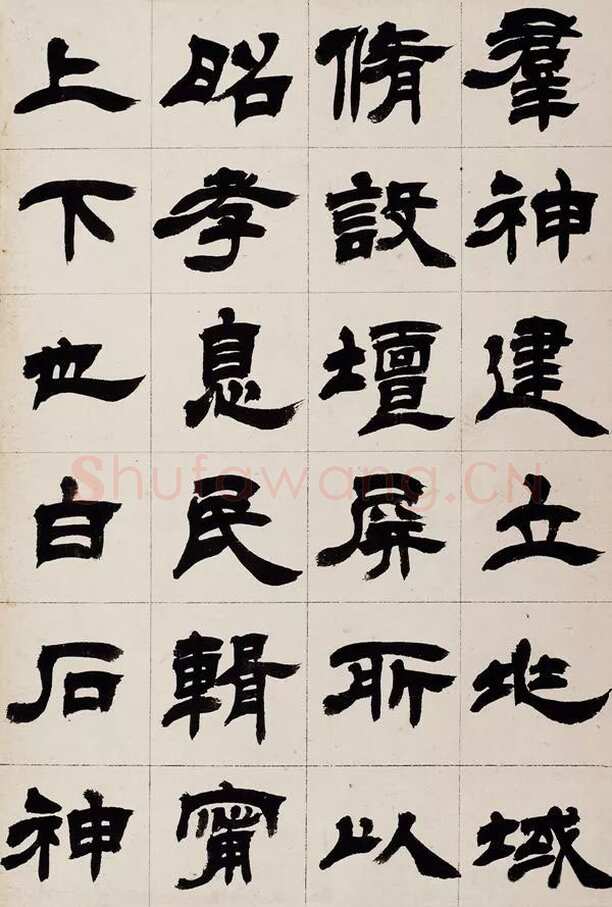 羣神建立兆域
脩設壇屏所以
昭孝息民輯甯
上下也白石神
Shufawang.CN